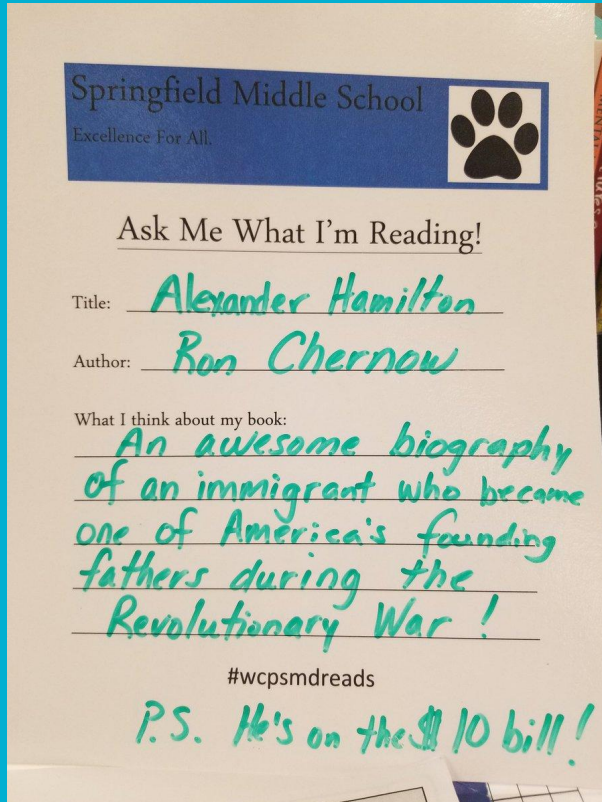 Springfield Middle School
Excellence For All.
Ask Me What I'm Reading!
Title: Alexander Hamilton
Author: Ron Chernow
What I think about my book:
An awesome biography
of an immigrant who became
one of America's founding
fathers during the
Revolutionary War!
#wcpsmdreads
P.S. He's on the $10 bill!